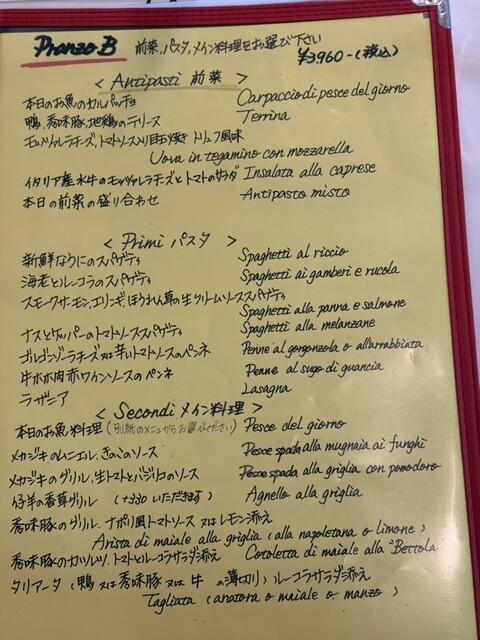 Pranzo B 前菜、パスタ、メイン料理をお選び下さい
¥3960-(税込)
< Antipasti 前菜 >
本日のお魚のカルパッチョ Carpaccio di pesce del giorno
鴨、香味豚、地鶏のテリーヌ Terrina
モッツァレラチーズ、トマトソース入り目玉焼き トリュフ風味
Uova in tegamino con mozzarella
イタリア産水牛のモッツァレラチーズとトマトのサラダ Insalata alla caprese
本日の前菜の盛り合わせ Antipasto misto
< Primi パスタ >
新鮮なうにのスパゲティ Spaghetti al riccio
海老とルーコラのスパゲティ Spaghetti ai gamberi e rucola
スモークサーモン、エリンギ、ほうれん草の生クリームソーススパゲティ
Spaghetti alla panna e salmone
ナスとケッパーのトマトソーススパゲティ Spaghetti alla melanzane
ゴルゴンゾーラチーズ又は辛いトマトソースのペンネ Penne al gorgonzola o all'arrabbiata
牛ホホ肉赤ワインソースのペンネ Penne al sugo di guancia
ラザニア Lasagna
< Secondi メイン料理 >
本日のお魚料理(別紙のメニューからお選びください) Pesce del giorno
メカジキのムニエル、きのこのソース Pesce spada alla mugnaia ai funghi
メカジキのグリル、生トマトとバジリコのソース Pesce spada alla griglia con pomodoro
仔羊の香草グリル (+330いただきます) Agnello alla griglia
香味豚のグリル、ナポリ風トマトソース又はレモン添え
Arista di maiale alla griglia (alla napoletana o limone)
香味豚のカツレツ、トマトとルーコラサラダ添え Cotoletta di maiale alla "Bettola"
タリアータ(鴨又は香味豚又は牛の薄切り)ルーコラサラダ添え
Tagliata (anatora o maiale o manzo)